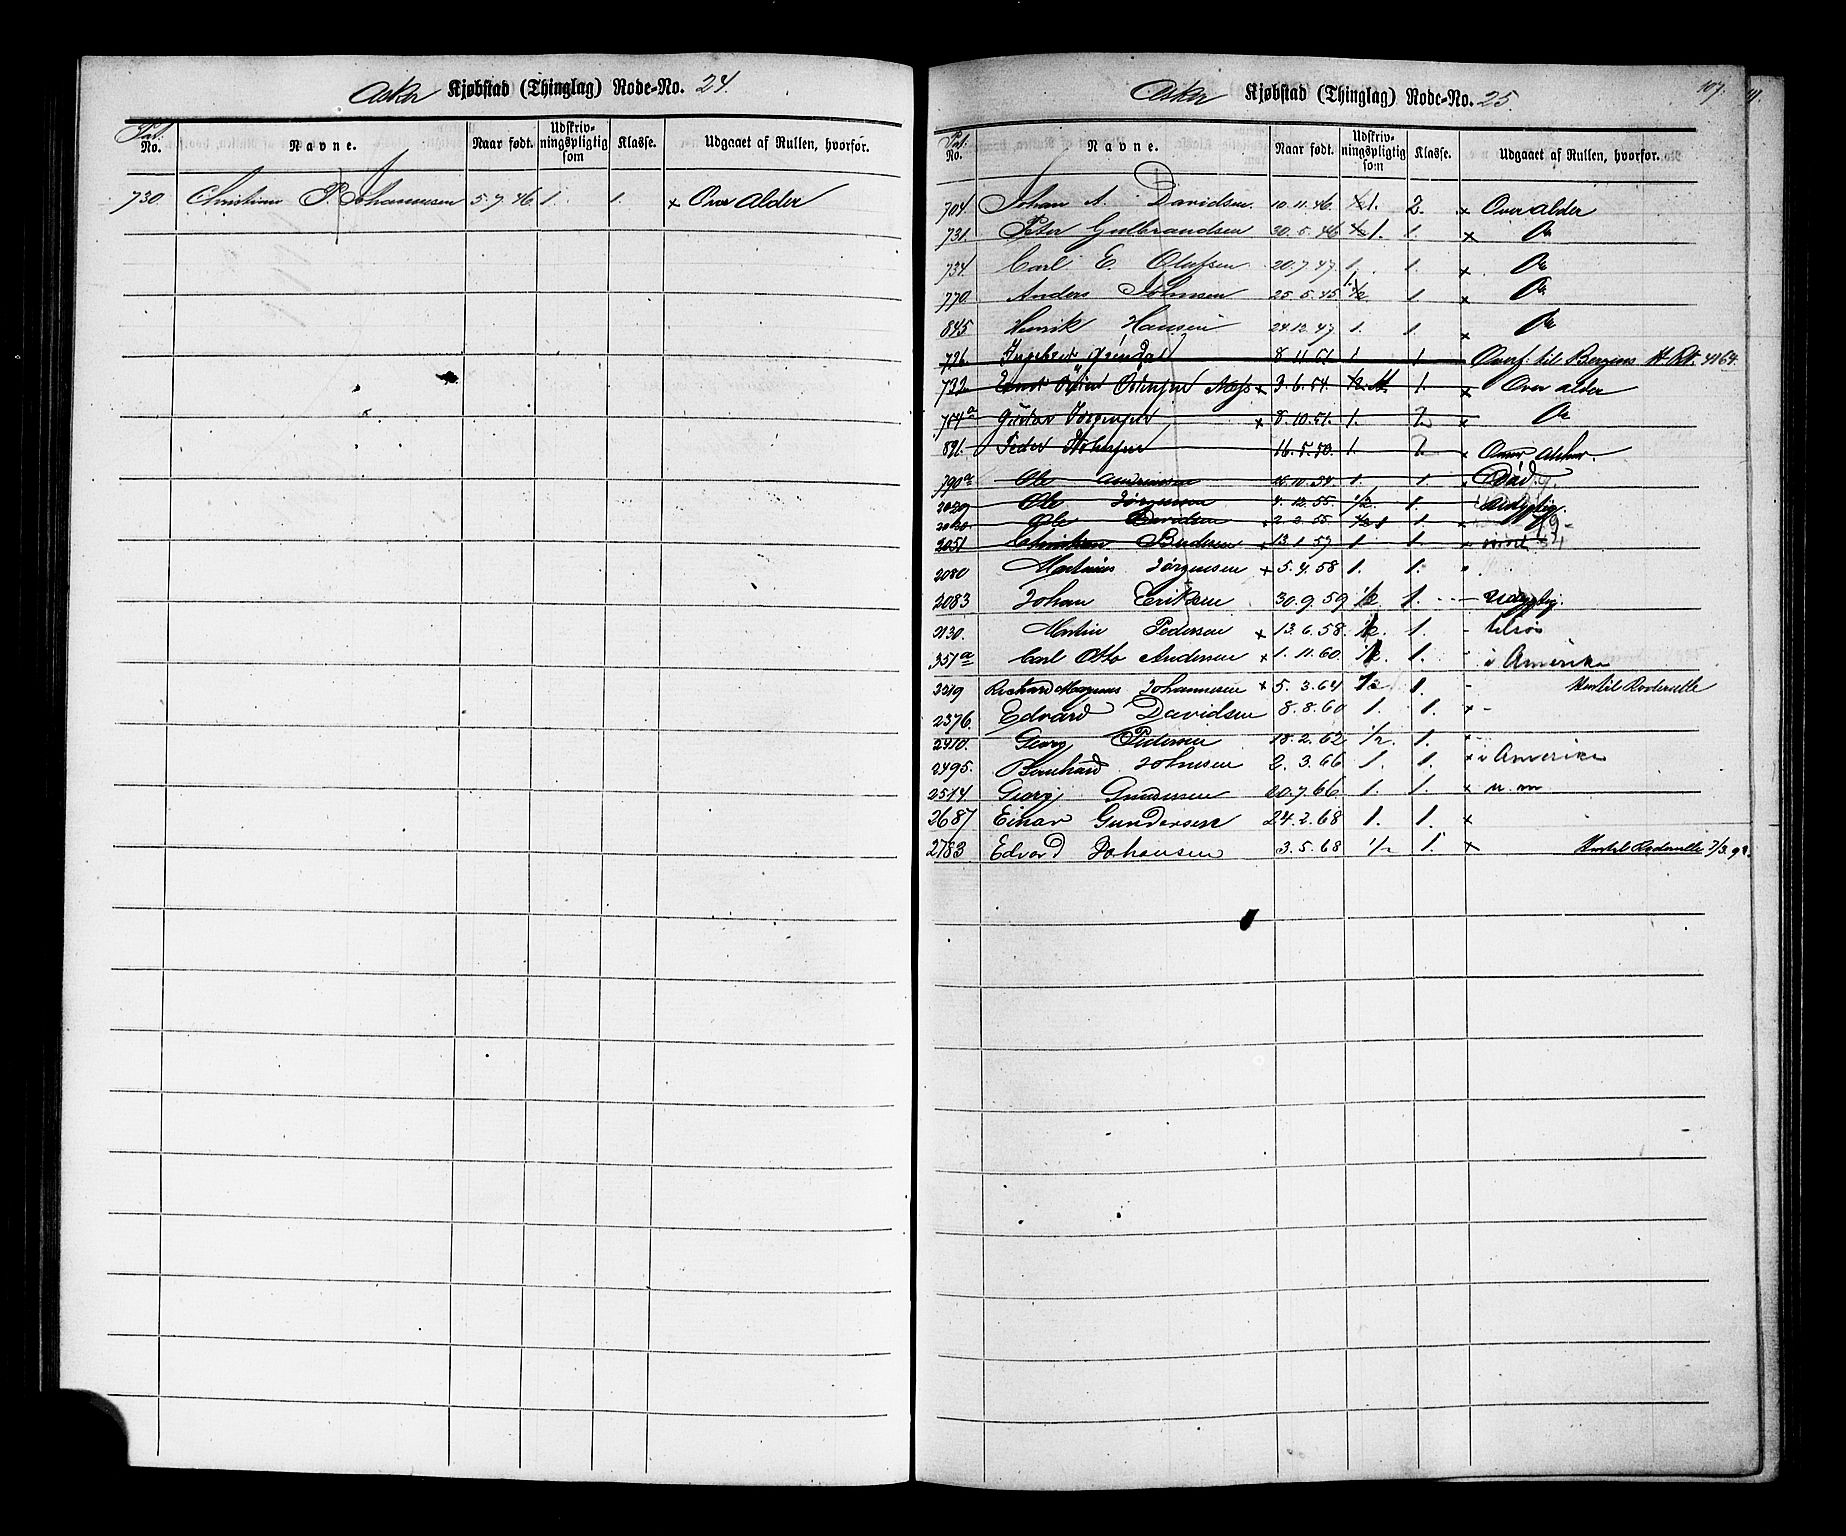 Asker Kjøbstad (Thinglag) Rode-No. 24.
Pat. No. Navne. Naar født. Udskrivningspligtig som Klasse. Udgaaet af Rullen, hvorfor.
730. Christian P. Johannesen 5.7.46 1. 1. x Over alder
107.
Asker Kjøbstad (Thinglag) Rode-No. 25.
Pat. No. Navne. Naar født. Udskrivningspligtig som Klasse. Udgaaet af Rullen, hvorfor.
704. Johan A. Davidsen 10.11.46. 1. 2. x Over alder
731. Peter Gulbrandsen 30.5.46 1/2 1. 1. x Do
734. Carl E. Olafsen 20.7.47. 1. 1. x Do
770. Anders Johnsen 25.5.45 1/2 1. 1 x Do
845. Henrik Hansen 24.12.47. 1. 1. x Do
726. Ingebret Grindal 8.11.51. 1. 1. Overf. til Bergens H. Rl. 4164.
732. Næss x 3.6.51. 1/2 1. x Over alder
754a Gustav Jørgensen x 8.10.51. 1. 2. x Do
821. Peder 16.5.50. 1. 2. x Over alder.
790a Ole Andreassen 10.54. 1. 1. Død.
2029 Ole Jørgensen 4.12.55. 1/2. 1. Udygtig.
2030 Ole Davidsen 2.2.55. 1/2 1 1.
2051 Christian Pedersen x 13.1.57. 1. 1.
2080 Martinius Jørgensen x 5.4.58 1. 1.
2083 Johan Eriksen 30.9.59 1/2 1. - Udygtig.
2130. Martin Pedersen x 13.6.58. 1/2. 1. - tilsøs
351a Carl Otto Andersen x 1.11.60. 1/2. 1. - i Amerika
3219 Richard Magnus Johannesen x 5.3.64 1/2 1. -
2376. Edvard Davidsen 8.8.60 1. 1. x -
2410. Georg Pedersen 18.2.62 1/2. 1. x -
2495. Bernhard Johnsen 2.3.66 1. 1. x i Amerika
2514 Georg Gundersen 20.7.66. 1. 1. x
2687 Einar Gundersen 24.2.68 1. 1. x
2783 Edvard Johansen 3.5.68 1/2 1. x